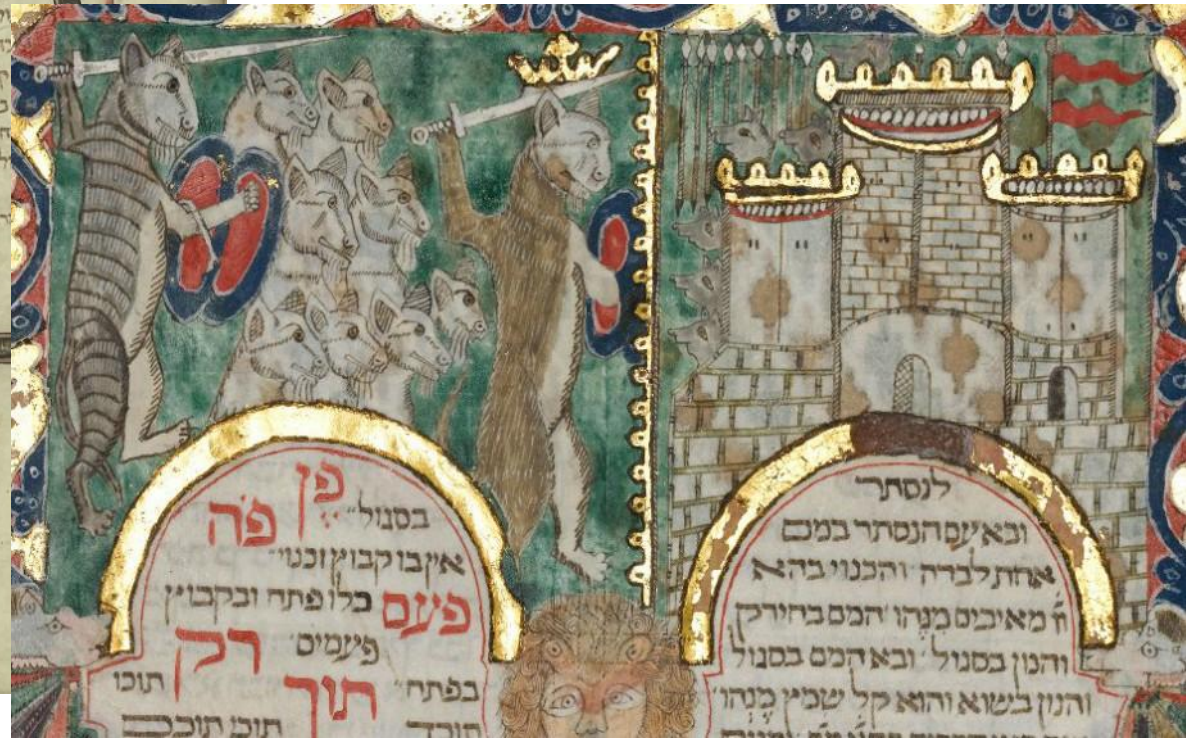 לנסתר
ובא עם הנסתר במכם
אחת לברה והכנוי בהא
מאיבים מִנֵּהוּ המם בחירק
והנון בסגול ובא המם בסגול
והנון בשוא והוא קל שמץ מֶנְהוּ
פֶּן
בסגול פֹה
אין בו קבוץ וכנוי
פעם כלו פתח ובקבוץ
פעמים רק
בפתח תוך תוכו
תוכי תוככם